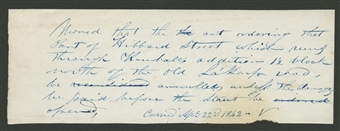 Moved that the act ordering that
Part of Hibbard Street which runs
through Kimballs addition 1½ block
north of the old Lakasp road,
be reconsidered annulled, unless the damage
be paid before the street be ordered
opened,
Carried Apl. 22d 1862 -